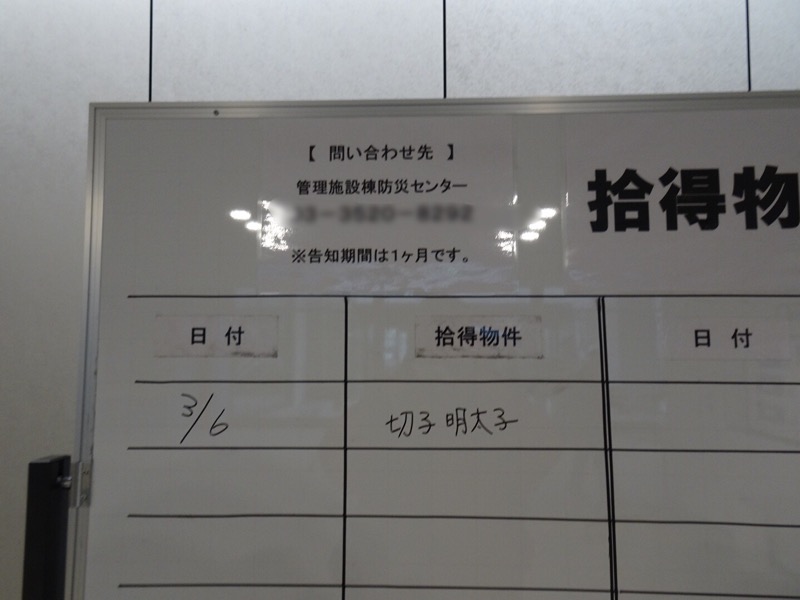 【 問い合わせ先 】
管理施設棟防災センター
※告知期間は1ヶ月です。
拾得物
日 付
拾得物件
日 付
3/6
切子明太子